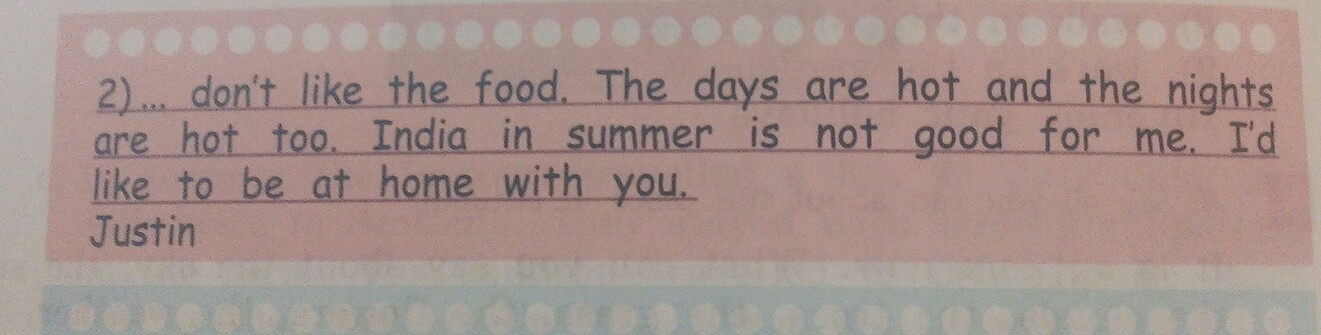 2)... don't like the food. The days are hot and the nights
are hot too. India in summer is not good for me. I'd
like to be at home with you.
Justin